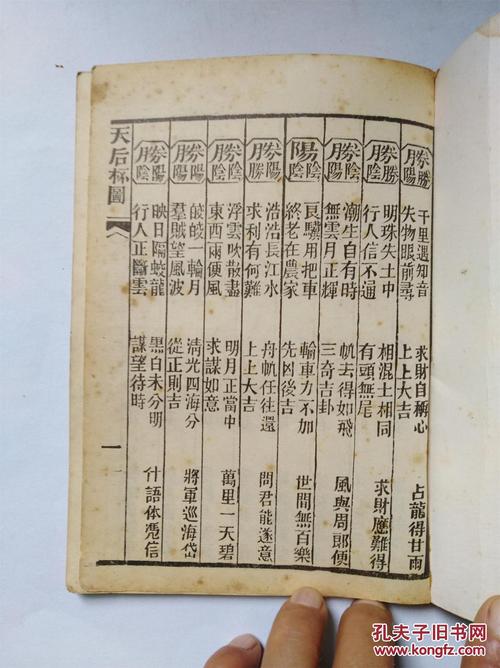 勝勝陽
千里遇知音 求財自稱心
失物眼前尋 上上大吉
占龍得甘雨
勝勝陰
明珠失土中 相混土相同
行人信不通 有頭無尾
求財應難得
勝陰陰
潮生自有時 帆去得如飛
無雲月正輝 三奇吉卦
風與周郎便
陽陰陰
良驥用把車 輪車力不加
終老在農家 先凶後吉
世間無百樂
浩浩長江水 舟帆任往還
求利有何難 上上大吉
問君能遂意
浮雲吹散盡 明月正當中
東西兩便風 求謀如意
萬里一天碧
皎皎一輪月 清光四海分
羣賊望風波 從正則吉
將軍巡海岱
映日隔蛟龍 黑白未分明
行人正斷雲 謀望待時
什語体憑信
天后杯圖
一
孔夫子旧书网
kongfz.com